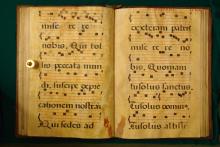 mise re re
nobis, Qui tol
lis peccata mun
di, suscipe depre
cationem nostrā
Qui sedes ad
dexteram patris
mise re re no
bis, Quoniam
tu solus sanctus,
Tu solus
Tu solus altissi